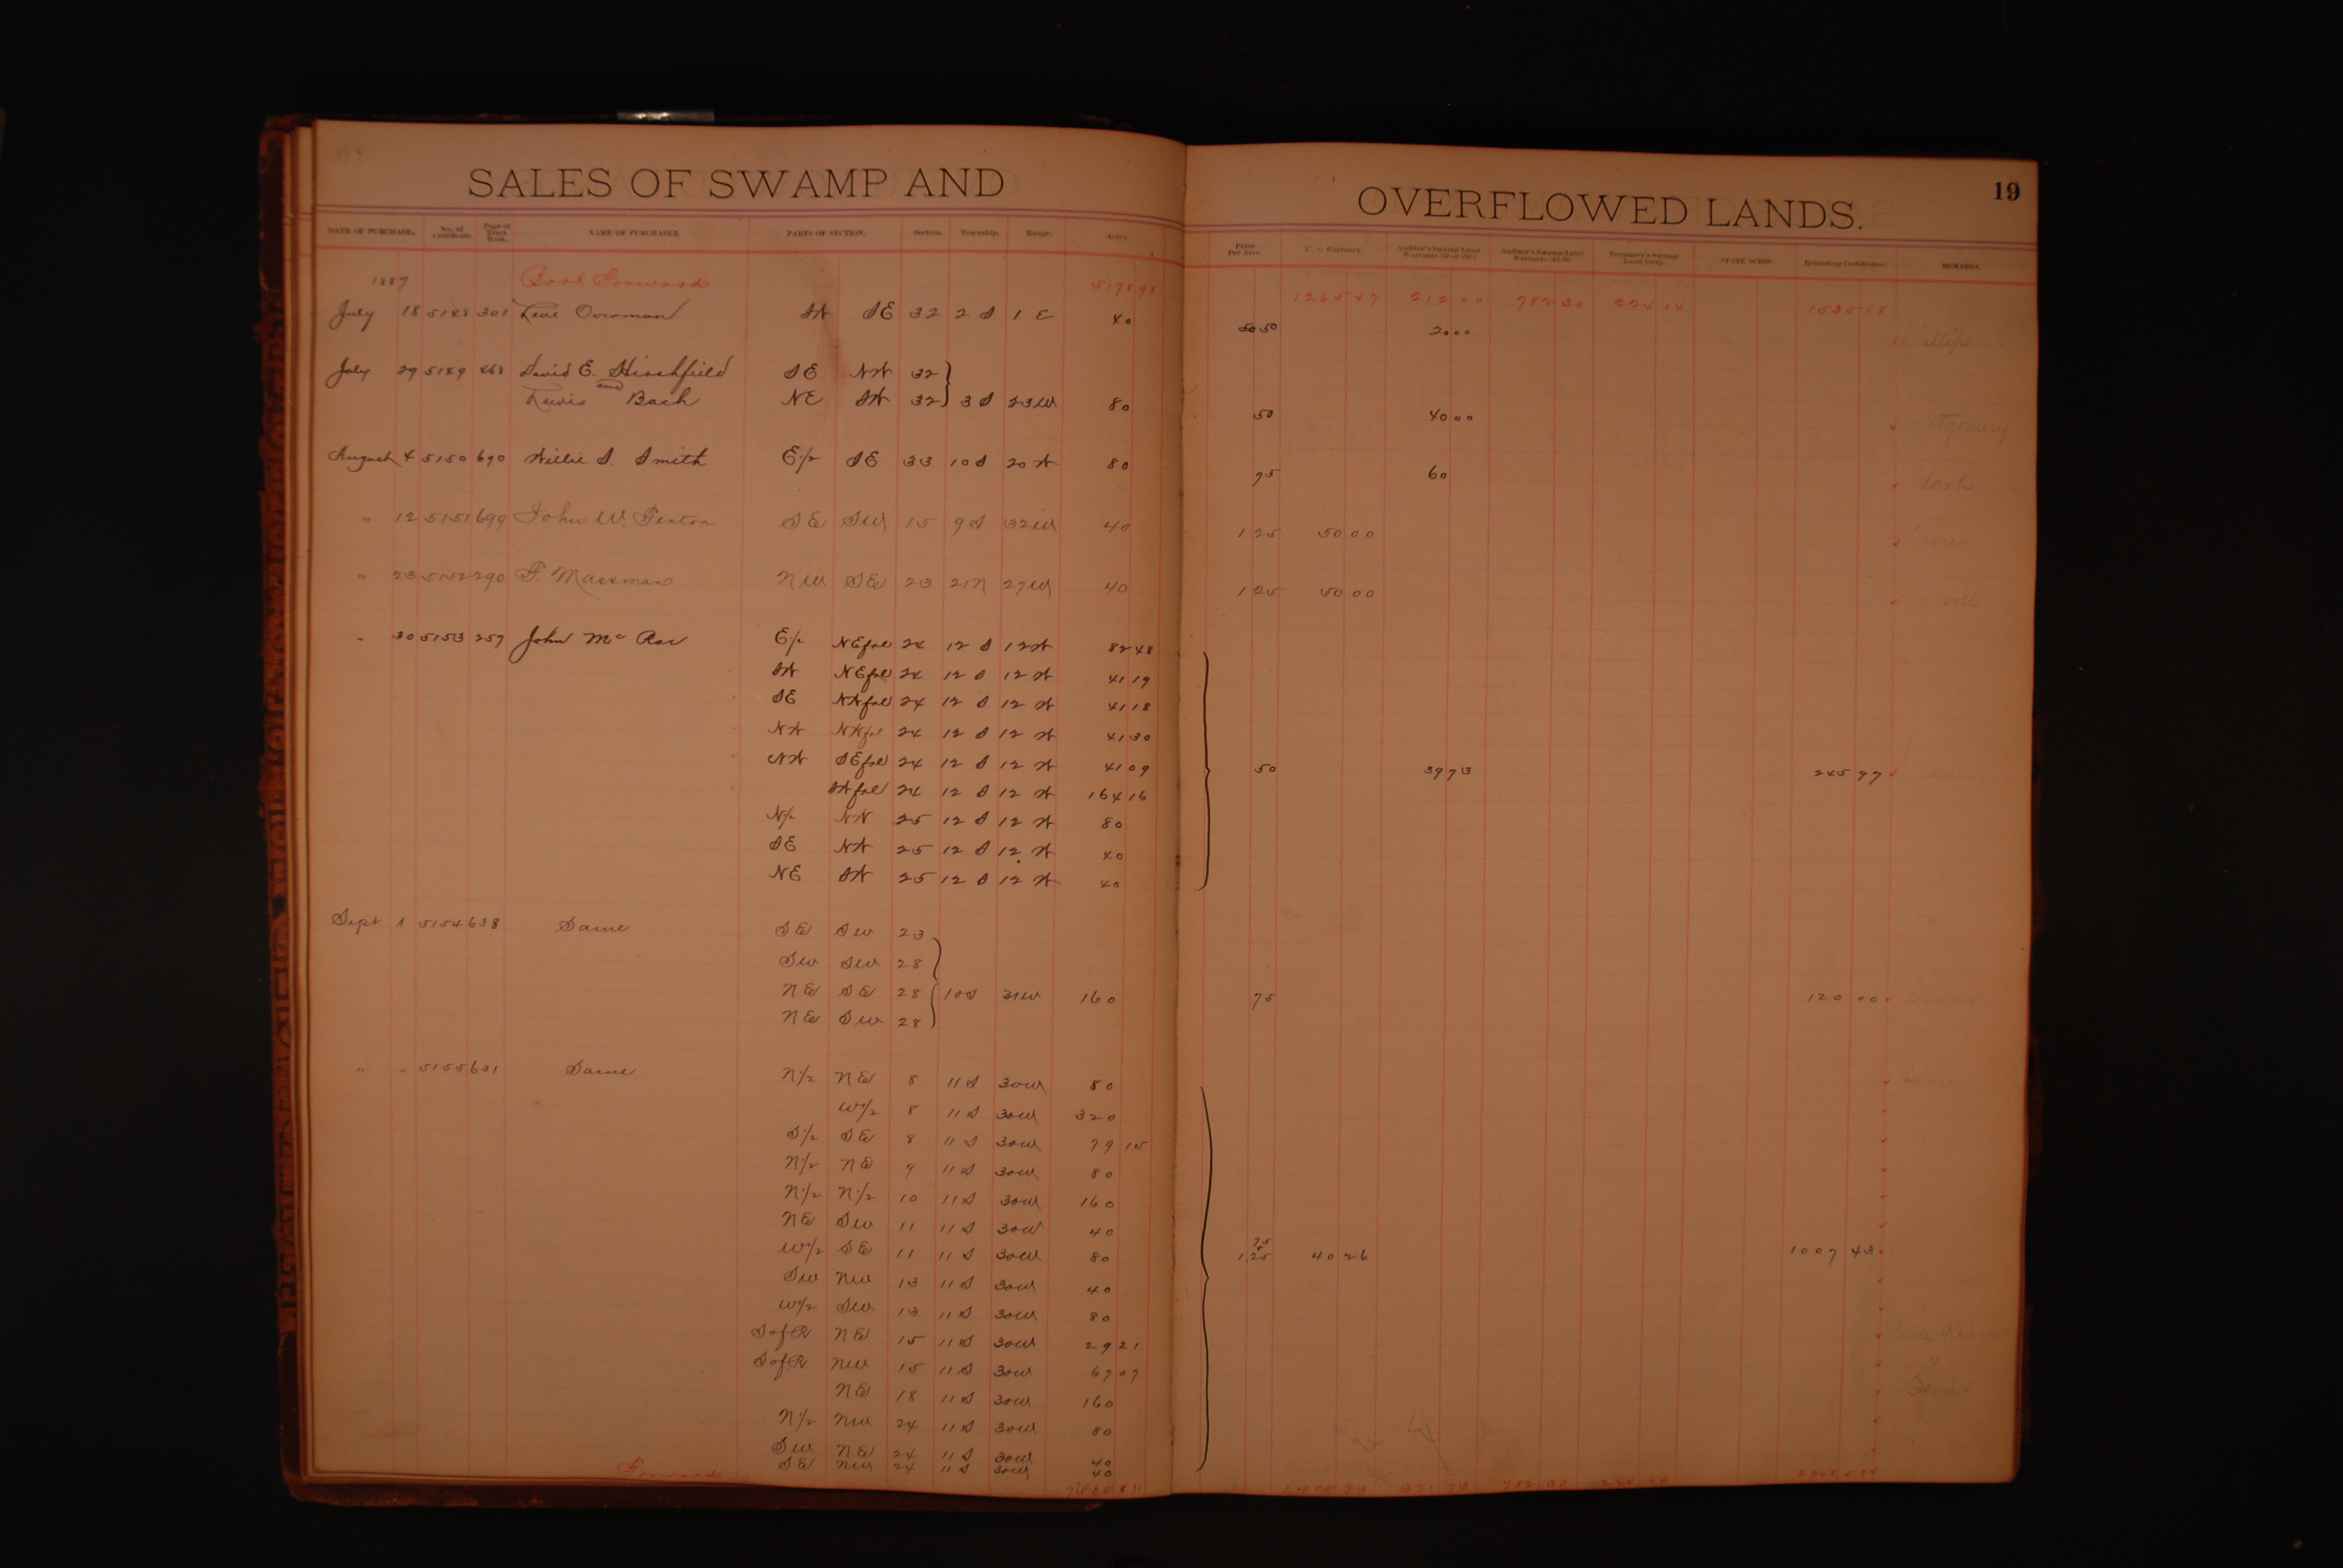 SALES OF SWAMP AND OVERFLOWED LANDS. 19
DATE OF PURCHASE. No. of Certificate. Page of Tract Book. NAME OF PURCHASER. PARTS OF SECTION. Section. Township. Range. Acres. Price Per Acre. U. S. Currency. Auditor's Swamp Land Warrants Auditor's Swamp Land Warrants Treasurer's Swamp Land Scrip. STATE SCRIP. Refunding Certificates. REMARKS.
1887 Forward 5178 98 1265 47 212 00 782 30 224 14 1535 18
July 18 5148 301 Levi Overman SW SE 32 2 S 1 E 40 50 20 00
July 29 5149 468 David E. Hirshfield SE NW 32
and Lewis Bach NE SW 32 3 S 23 W 80 50 40 00
August 4 5150 690 Willie S. Smith E ½ SE 33 10 S 20 W 80 75 60
" 12 5151 699 John W. Fenton SE SW 15 9 S 32 W 40 1 25 50 00
" 23 5152 290 F. Massman NW SE 23 21 N 27 W 40 1 25 50 00
" 30 5153 257 John Mc Rae E ½ NE frl 24 12 S 12 W 82 48
SW NE frl 24 12 S 12 W 41 19
SE NW frl 24 12 S 12 W 41 18
NW NW frl 24 12 S 12 W 41 30
NW SE frl 24 12 S 12 W 41 09 50 39 73 245 97
SW frl 24 12 S 12 W 164 16
N ½ NW 25 12 S 12 W 80
SE NW 25 12 S 12 W 40
NE SW 25 12 S 12 W 40
Sept 1 5154 638 Same SE SW 23
SW SW 28
NE SE 28 10 S 31 W 160 75 120 00
NE SW 28
" " 5155 631 Same N ½ NE 8 11 S 30 W 80 Sevier
W ½ 8 11 S 30 W 320
S ½ SE 8 11 S 30 W 79 15
N ½ NE 9 11 S 30 W 80
N ½ N ½ 10 11 S 30 W 160
NE SW 11 11 S 30 W 40
W ½ SE 11 11 S 30 W 80 75 1.25 40 26 1007 43
SW NW 13 11 S 30 W 40
W ½ SW 13 11 S 30 W 80
S of R NE 15 11 S 30 W 29 21 Little River
S of R NW 15 11 S 30 W 67 07 "
NE 18 11 S 30 W 160 Sevier
N ½ NW 24 11 S 30 W 80
SW NE 24 11 S 30 W 40
SE NW 24 11 S 30 W 40
Forward 371 73 782 30 224 14